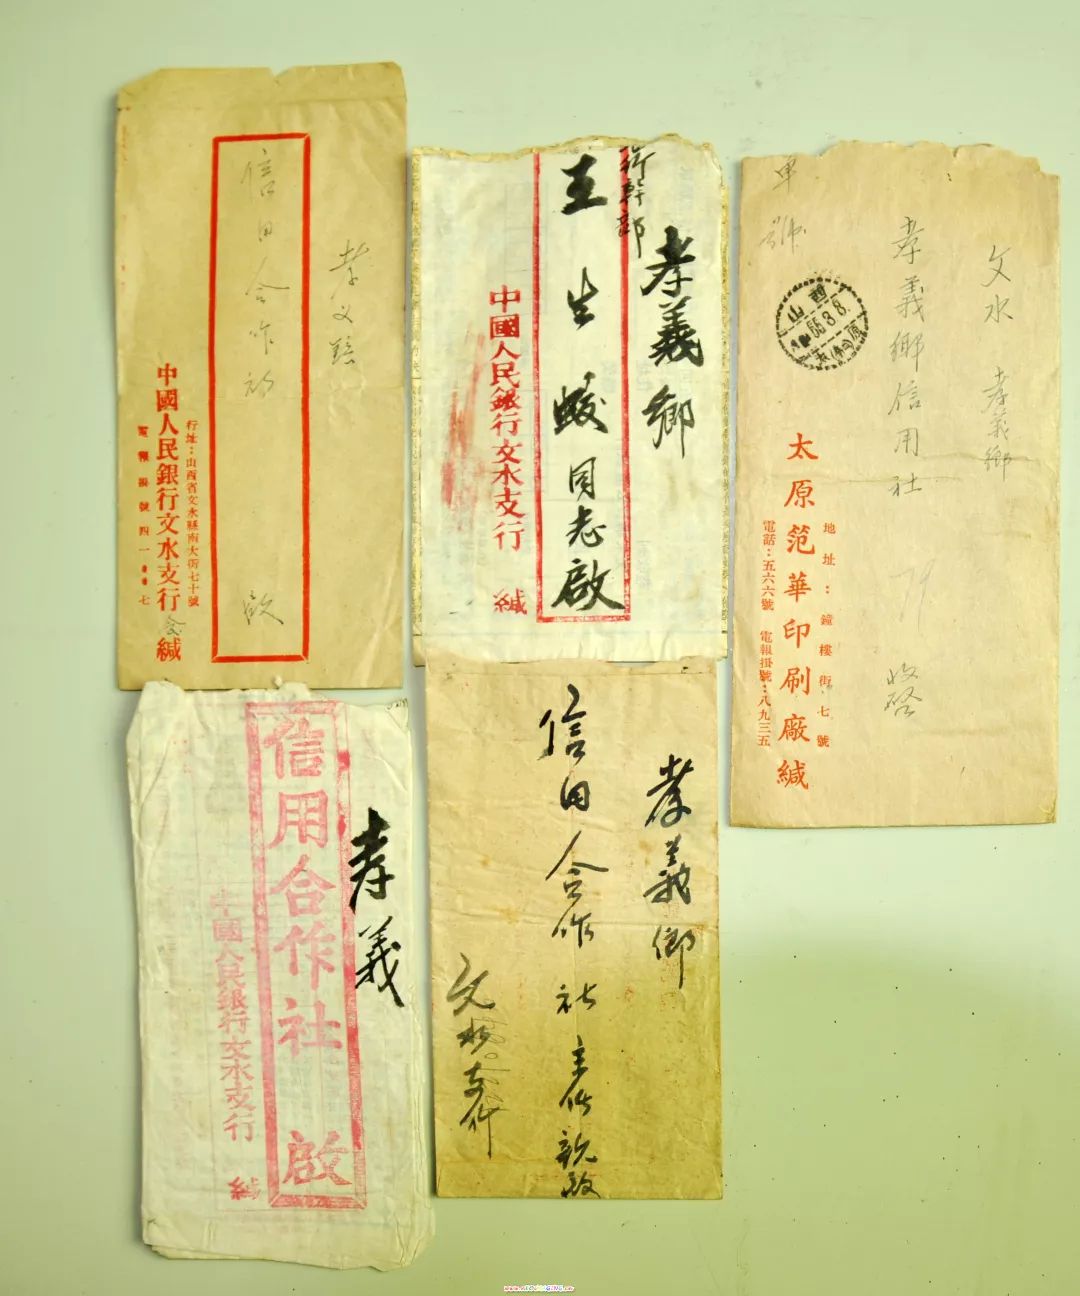 孝义镇
信用合作社
啟
行址：山西省文水縣南大街七十號
中國人民銀行文水支行
緘
電報掛號四一
七
行幹部
孝義鄉
王生蛟同志啟
中國人民銀行文水支行
緘
文水 孝義鄉
孝義鄉信用社
收啓
單號
山西
55.3.8.
太原
地址：鐘樓街七號
太原范華印刷廠緘
電話：五六六號 電報掛號：八九三五
孝義
信用合作社 啟
中國人民銀行文水支行
緘
孝義鄉
信用合作社主任親啟
文水支行